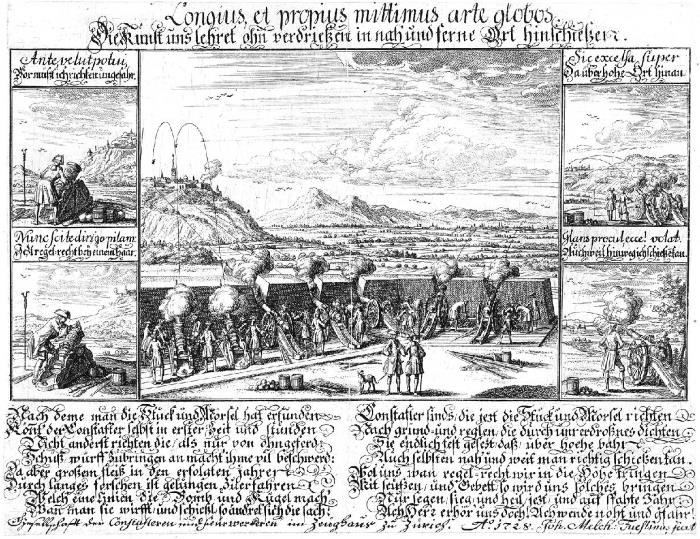 Longius et propius mittimus arte globos.
Die Kunst uns lehret ohn verdriessen in nah und ferne Ort hinschiessen.
Ante velut potui,
Vor must ich richten ungefahr.
Sic excelsa super
Da über hohe Ort hinan.
Nunc scite dirigo pilam
regel-recht bey einem Haar.
Glans procul ecce! volat.
Auch weil hinweg ich schiessen kan.
Nach deme man die Stuck und Morsel hat erfunden
Konst der Constafler selbst in erster Zeit und stunden
Nicht anderst richten die/ als nur von ohngeferd
Schuss würff zubringen an macht ihme vil beschwerd:
Da aber grossem fleiss in den erfolgten jahren
Durch langes forschen ist gelungen
Welch eine linien die Bomb und Kugel mach
Wan man sie wirfft und schiesst so ändret sich die sach:
Constafler sinds die jezt die Stuck und Morsel richten
Nach grund und reglen die durch unverdrossnes dichten
Sie endlich fest gesezt dass über hoche
Auch selbsten nah und weit man richtig schiessen kan.
uns wan regel-recht wir in die Höhe bringen
Mit seüffzen und Gebett so wird uns solches
Nur segen sieg und heil jezt und auf
Ach Herr erhör uns doch! Ach wende noht und gfahr!
Gesellschaft der Constafleren und feurwerckeren im Zeughaus zu Zürich. Aº. 1728. Joh. Melch. Fuesslinus fecit